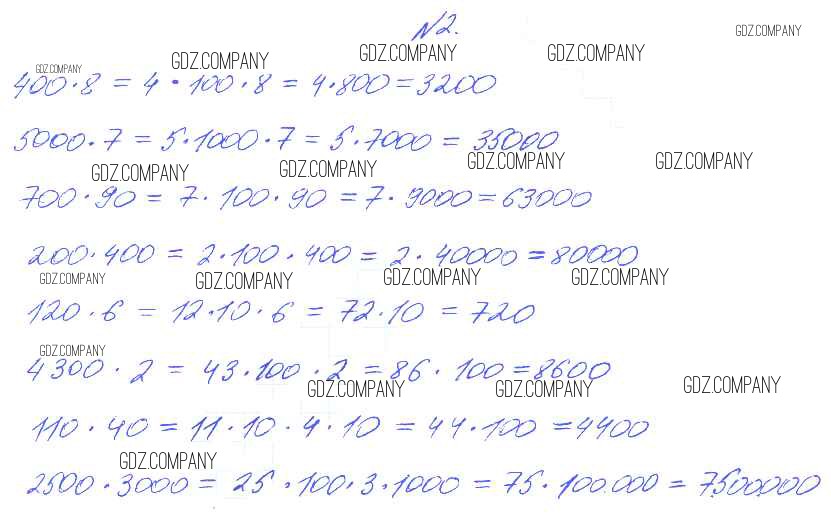 N2.
GDZ.COMPANY
GDZ.COMPANY GDZ.COMPANY GDZ.COMPANY GDZ.COMPANY
400·8 = 4·100·8 = 4·800 = 3200
5000·7 = 5·1000·7 = 5·7000 = 35000
GDZ.COMPANY GDZ.COMPANY GDZ.COMPANY GDZ.COMPANY
700·90 = 7·100·90 = 7·9000 = 63000
200·400 = 2·100·400 = 2·40000 = 80000
GDZ.COMPANY GDZ.COMPANY GDZ.COMPANY GDZ.COMPANY
120·6 = 12·10·6 = 72·10 = 720
GDZ.COMPANY
4300·2 = 43·100·2 = 86·100 = 8600
GDZ.COMPANY GDZ.COMPANY GDZ.COMPANY
110·40 = 11·10·4·10 = 44·100 = 4400
GDZ.COMPANY
2500·3000 = 25·100·3·1000 = 75·100.000 = 7.500.000